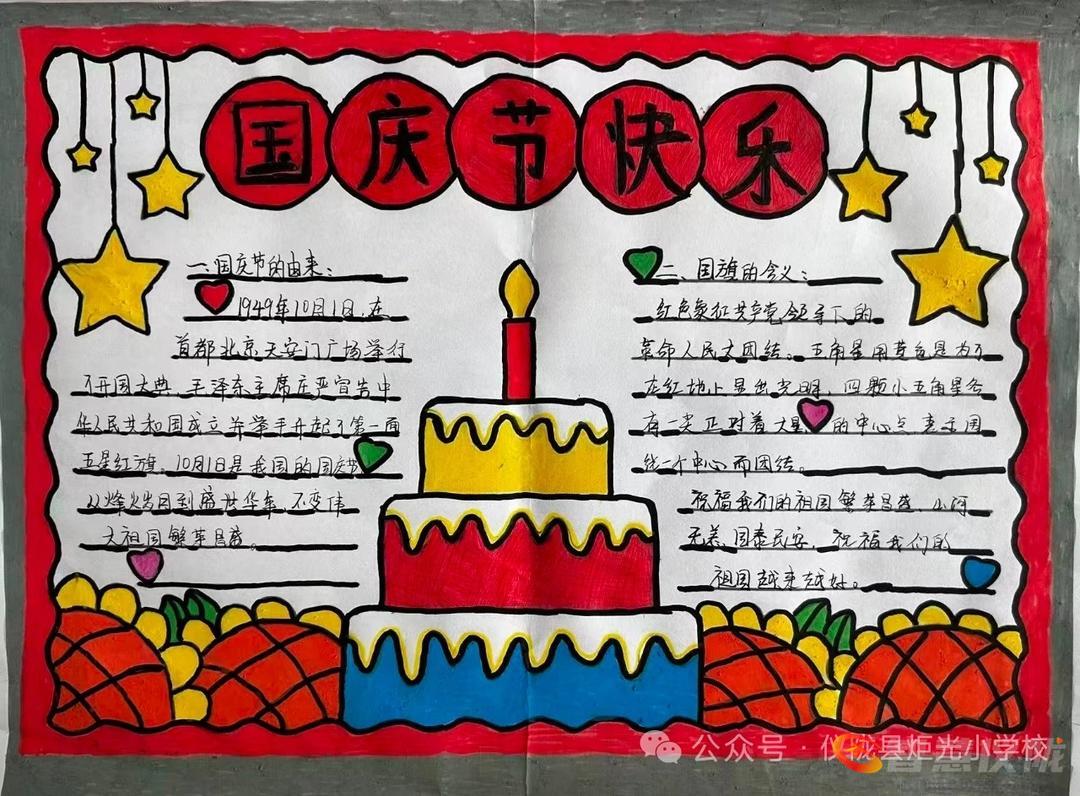 国庆节快乐
一、国庆节的由来：
1949年10月1日，在
首都北京天安门广场举行
了开国大典，毛泽东主席庄严宣告中
华人民共和国成立并举手升起了第一面
五星红旗，10月1日是我国的国庆节
从烽火岁月到盛世华年，不变伟
大祖国繁荣昌盛。
二、国旗的含义：
红色象征共产党领导下的
革命人民大团结。五角星用黄色是为了
在红地上显出光明，四颗小五角星各
有一尖正对着大星的中心点 表示围
绕一个中心而团结。
祝福我们的祖国繁荣昌盛，山河
无恙，国泰民安，祝福我们的
祖国越来越好。
公众号·仪陇县炬光小学校
智慧仪陇